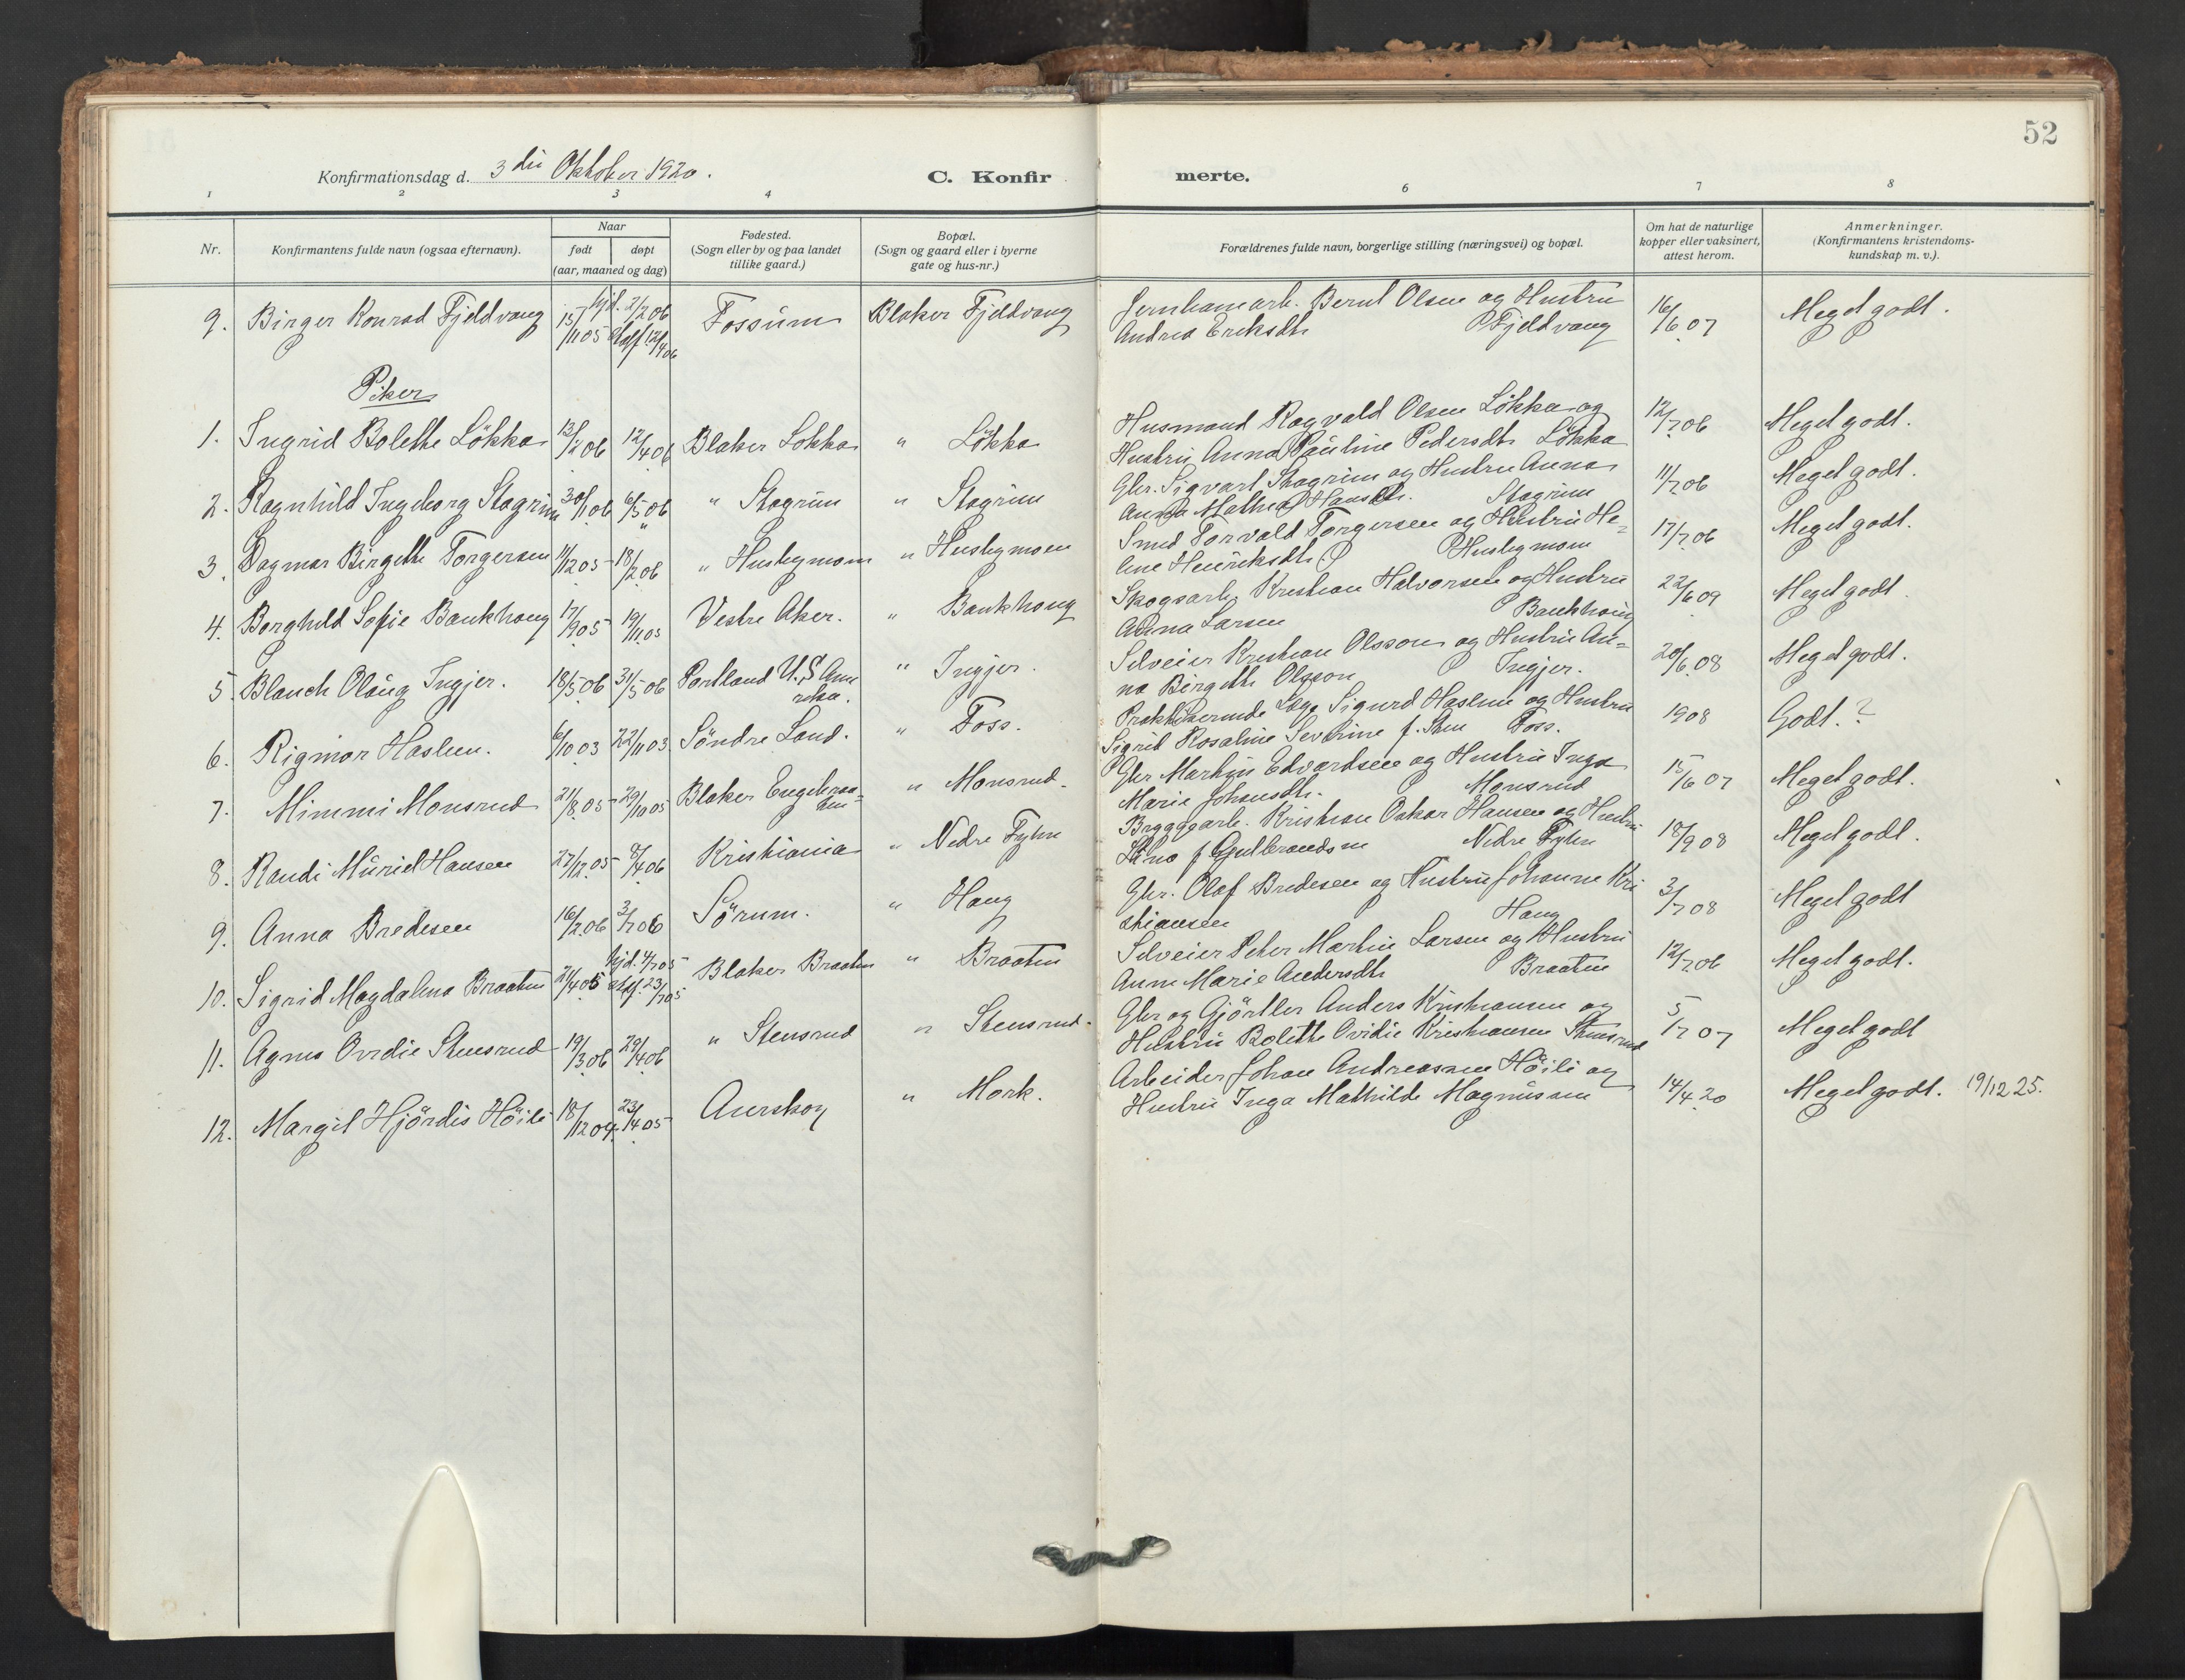 52
Konfirmationsdag d. 3die Oktober 1920.
C. Konfirmerte.
1 2 3 4 6 7 8
Nr.
Konfirmantens fulde navn (ogsaa efternavn).
Naar
født døpt
(aar, maaned og dag)
Fødested.
(Sogn eller by og paa landet
tillike gaard.)
Bopæl.
(Sogn og gaard eller i byerne
gate og hus-nr.)
Forældrenes fulde navn, borgerlige stilling (næringsvei) og bopæl.
Om hat de naturlige
kopper eller vaksinert,
attest herom.
Anmerkninger.
(Konfirmantens kristendoms-
kundskap m. v.).
9. Birger Konrad Fjeldvang 15/11 05 hjd. 2/2 06 Fossum Blaker Fjeldvang Jernbanearb. Bernt Olsen og Hustru 16/6 07 Meget godt.
stadf. 12/4 06 Andrea Eriksdtr Fjeldvang
Piker
1. Ingrid Bolette Lökka 13/1 06 12/4 06 Blaker Lökka " Lökka Husmand Ragvald Olsen Lökka og 12/7 06 Meget godt.
Hustru Anna Pauline Pedersdtr Lökka
2. Ragnhild Ingeborg Stagrim 30/1 06 6/5 06 " Stagrim " Stagrim Gbr. Sigvart Stagrim og Hustru Anna 11/7 06 Meget godt.
Anna Mathea Hansdtr. Stagrim
3. Dagmar Birgitte Torgersen 11/12 05 18/2 06 " Husbymoen " Husbymoen Smed Torvald Torgersen og Hustru He- 17/7 06 Meget godt.
lene Henriksdtr Husbymoen
4. Borghild Sofie Baukhaug 17/9 05 19/11 05 Vestre Aker. " Baukhaug Skogsarb. Kristian Halvorsen og Hustru 22/6 09 Meget godt.
Anna Larsen Baukhaug
5. Blanch Olaug Ingjer. 18/5 06 31/5 06 Portland U.S. Ame " Ingjer. Selveier Kristian Olsson og Hustru An- 20/6 08 Meget godt.
rika. na Birgitte Olsson Ingjer.
6. Rigmor Haslun. 6/10 03 22/11 03 Söndre Land. " Foss. Praktiserende Læge Sigurd Haslun og Hustru 1908 Godt.?
Sigrid Rosaline Severine f. Sten Foss.
7. Mimmi Monsrud 21/8 05 29/10 05 Blaker Engebraa- " Monsrud. Gbr Martin Edvardsen og Hustru Inga 15/6 07 Meget godt.
ten Marie Johansdtr. Monsrud
8. Randi Muriel Hansen 27/12 05 8/4 06 Kristiania " Nedre Fyhn Bryggearb. Kristian Oskar Hansen og Hustru 18/9 08 Meget godt.
f Gulbrandsen Nedre Fyhn
9. Anna Bredesen 16/2 06 3/7 06 Sörum. " Haug Gbr. Olaf Bredesen og Hustru Johanne Kri 3/7 08 Meget godt
stiansen Haug
10. Sigrid Magdalena Braaten 21/4 05 hjd. 4/7 05 Blaker Braaten " Braaten Selveier Peter Martin Larsen og Hustru 12/7 06 Meget godt.
stadf. 23/7 05 Anne Marie Andersdtr Braaten
11. Agnes Ovidie Stensrud 19/3 06 29/4 06 " Stensrud " Stensrud. Gbr og Gjörtler Anders Kristiansen og 5/7 07 Meget godt
Hustru Bolette Ovidie Kristiansen Stensrud
12. Margit Hjördis Höili 18/12 04 23/4 05 Aurskog " Mork. Arbeider Johan Andreassen Höili og 14/4 20 Meget godt. 19/12 25.
Hustru Inga Mathilde Magnussen